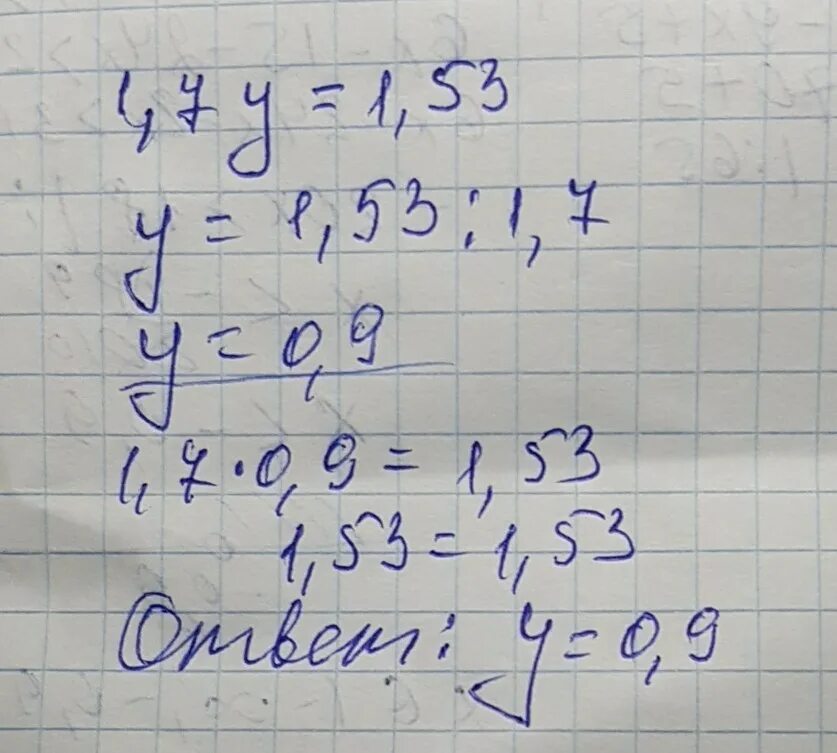 1,7 y = 1,53
y = 1,53 : 1,7
y = 0,9
1,7 · 0,9 = 1,53
1,53 = 1,53
Ответ: y = 0,9